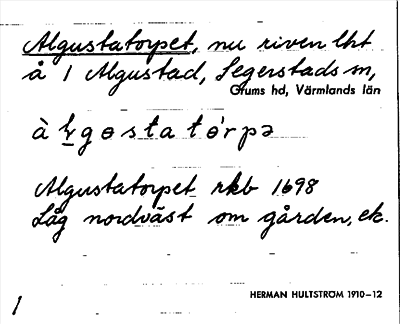 Algustatorpet, nu riven lht
å 1 Algustad, Segerstads sn,
Grums hd, Värmlands län
Algustatorpet rkb 1698
Låg nordväst om gården, ek.
HERMAN HULTSTRÖM 1910–12
1